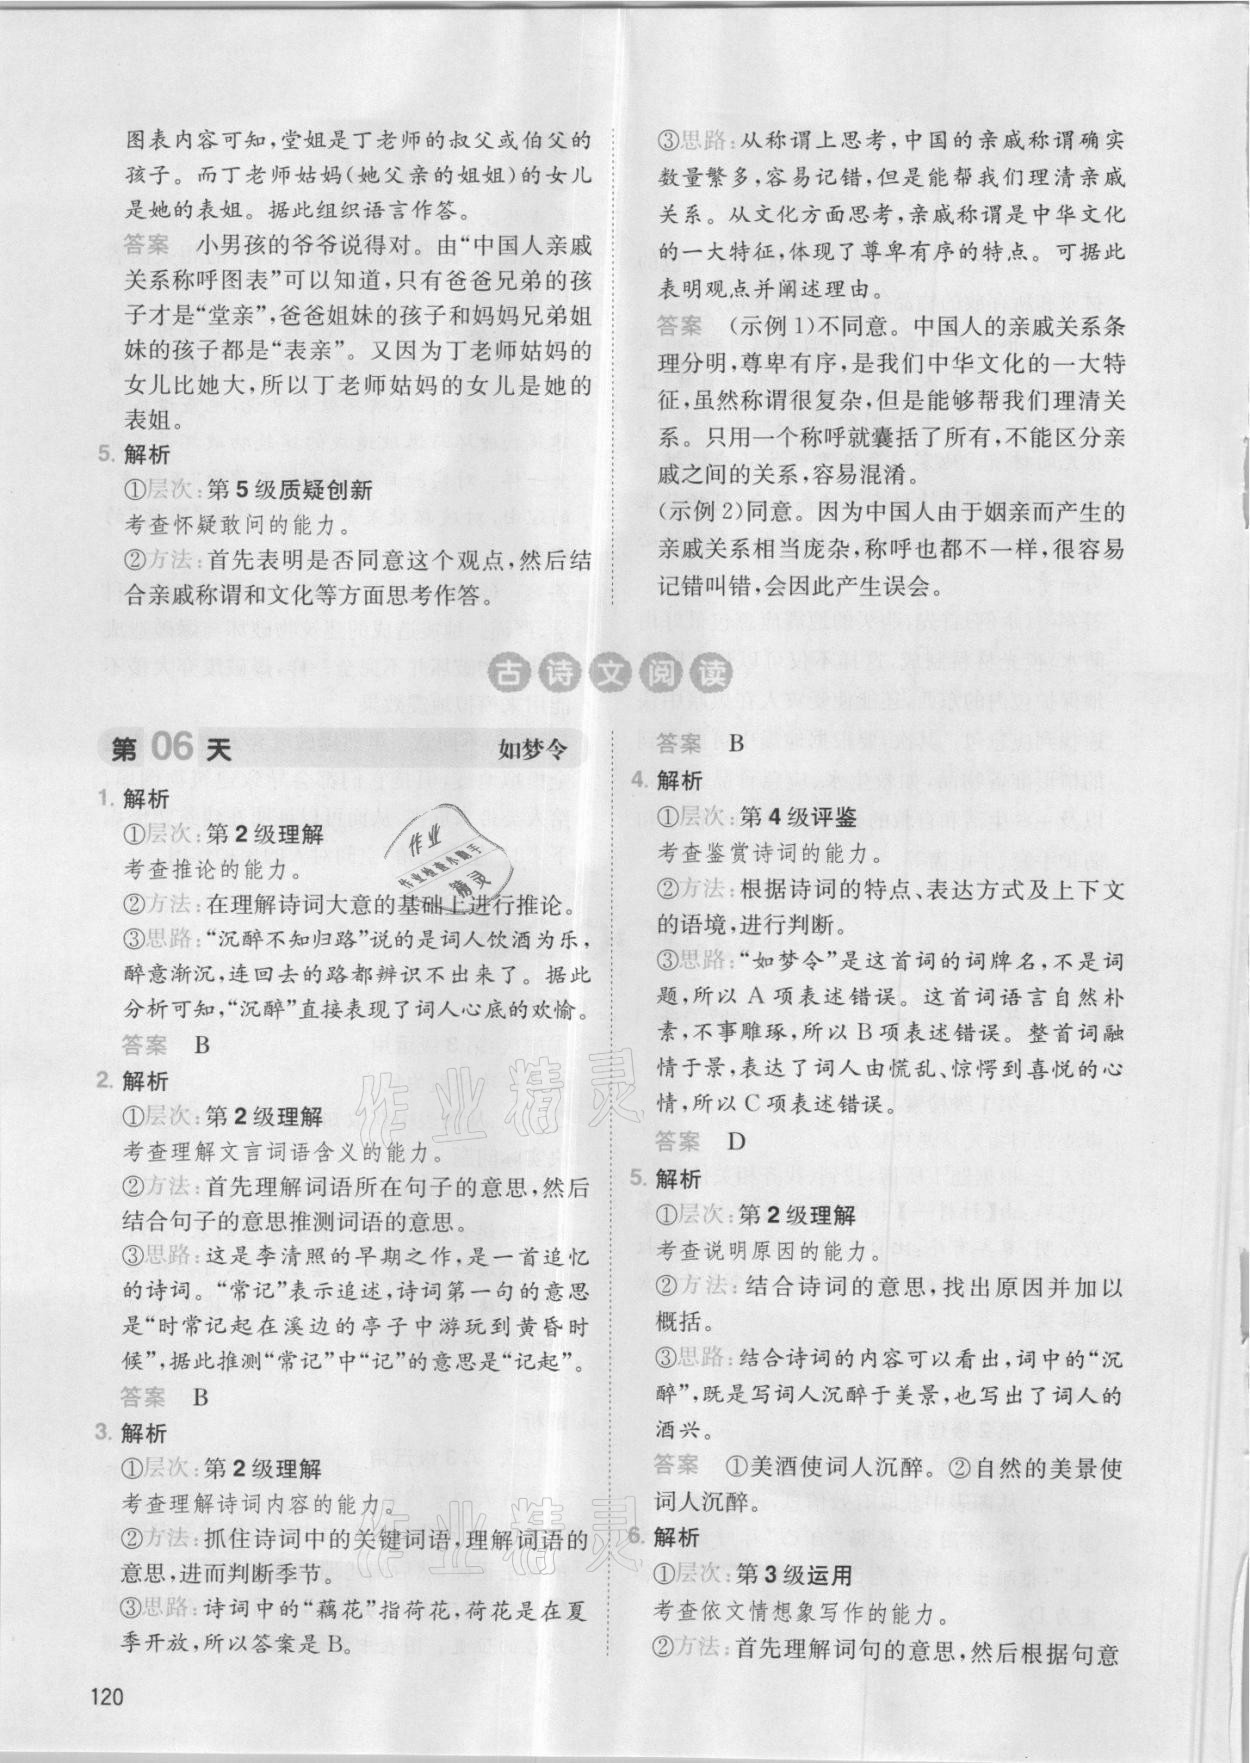 图表内容可知,堂姐是丁老师的叔父或伯父的
孩子。而丁老师姑妈(她父亲的姐姐)的女儿
是她的表姐。据此组织语言作答。
答案 小男孩的爷爷说得对。由“中国人亲戚
关系称呼图表”可以知道,只有爸爸兄弟的孩
子才是“堂亲”,爸爸姐妹的孩子和妈妈兄弟姐
妹的孩子都是“表亲”。又因为丁老师姑妈的
女儿比她大,所以丁老师姑妈的女儿是她的
表姐。
5. 解析
①层次:第5级质疑创新
考查怀疑敢问的能力。
②方法:首先表明是否同意这个观点,然后结
合亲戚称谓和文化等方面思考作答。
③思路:从称谓上思考,中国的亲戚称谓确实
数量繁多,容易记错,但是能帮我们理清亲戚
关系。从文化方面思考,亲戚称谓是中华文化
的一大特征,体现了尊卑有序的特点。可据此
表明观点并阐述理由。
答案 (示例1)不同意。中国人的亲戚关系条
理分明,尊卑有序,是我们中华文化的一大特
征,虽然称谓很复杂,但是能够帮我们理清关
系。只用一个称呼就囊括了所有,不能区分亲
戚之间的关系,容易混淆。
(示例2)同意。因为中国人由于姻亲而产生的
亲戚关系相当庞杂,称呼也都不一样,很容易
记错叫错,会因此产生误会。
古诗文阅读
第06天 如梦令
1. 解析
①层次:第2级理解
考查推论的能力。
②方法:在理解诗词大意的基础上进行推论。
③思路:“沉醉不知归路”说的是词人饮酒为乐,
醉意渐沉,连回去的路都辨识不出来了。据此
分析可知,“沉醉”直接表现了词人心底的欢愉。
答案 B
2. 解析
①层次:第2级理解
考查理解文言词语含义的能力。
②方法:首先理解词语所在句子的意思,然后
结合句子的意思推测词语的意思。
③思路:这是李清照的早期之作,是一首追忆
的诗词。“常记”表示追述,诗词第一句的意思
是“时常记起在溪边的亭子中游玩到黄昏时
候”,据此推测“常记”中“记”的意思是“记起”。
答案 B
3. 解析
①层次:第2级理解
考查理解诗词内容的能力。
②方法:抓住诗词中的关键词语,理解词语的
意思,进而判断季节。
③思路:诗词中的“藕花”指荷花,荷花是在夏
季开放,所以答案是B。
答案 B
4. 解析
①层次:第4级评鉴
考查鉴赏诗词的能力。
②方法:根据诗词的特点、表达方式及上下文
的语境,进行判断。
③思路:“如梦令”是这首词的词牌名,不是词
题,所以A项表述错误。这首词语言自然朴
素,不事雕琢,所以B项表述错误。整首词融
情于景,表达了词人由慌乱、惊愕到喜悦的心
情,所以C项表述错误。
答案 D
5. 解析
①层次:第2级理解
考查说明原因的能力。
②方法:结合诗词的意思,找出原因并加以
概括。
③思路:结合诗词的内容可以看出,词中的“沉
醉”,既是写词人沉醉于美景,也写出了词人的
酒兴。
答案 ①美酒使词人沉醉。②自然的美景使
词人沉醉。
6. 解析
①层次:第3级运用
考查依文情想象写作的能力。
②方法:首先理解词句的意思,然后根据句意
120
作业
作业检查小助手
精灵
作业精灵
作业精灵